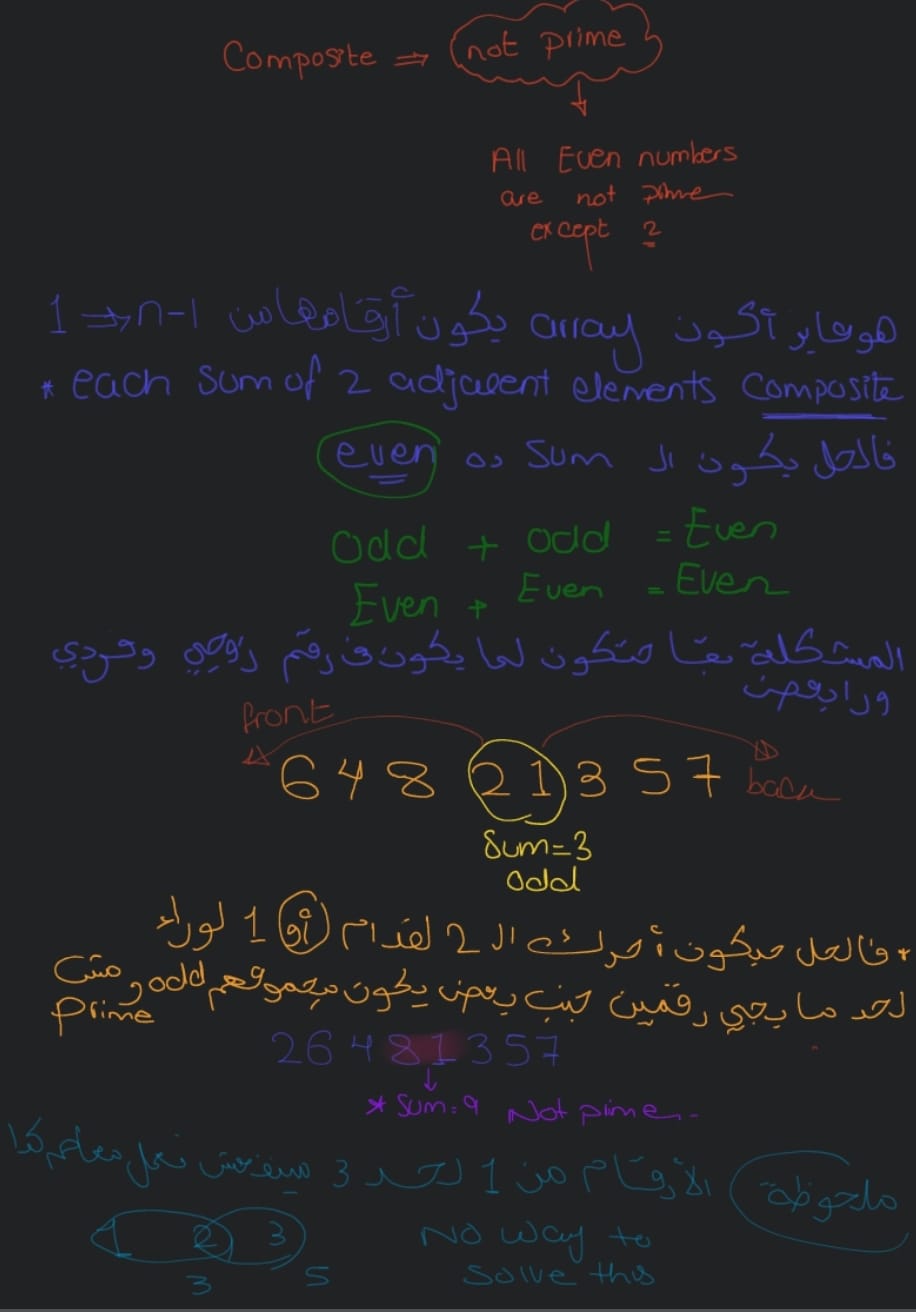 Composite ⇒ not prime
↓
All Even numbers
are not prime
except 2
هو عايز أكون array يكون أرقامها من 1 ⇒ n-1
* each sum of 2 adjacent elements Composite
فالحل يكون ال sum ده even
Odd + odd = Even
Even + Even = Even
المشكلة بقا هتكون لما يكون في رقم زوجي وفردي
ورا بعض
front
6 4 8 2 1 3 5 7 back
Sum=3
Odd
* فالحل هيكون أحرك ال 2 لقدام أو 1 لوراء
لحد ما يجي رقمين جنب بعض يكون مجموعهم odd و مش
Prime
2 6 4 8 1 3 5 7
↓
* Sum=9 Not pime
ملحوظة الأرقام من 1 لحد 3 مينفعش نعمل معاهم كدا
1 2 3 No way to
3 5 Solve this